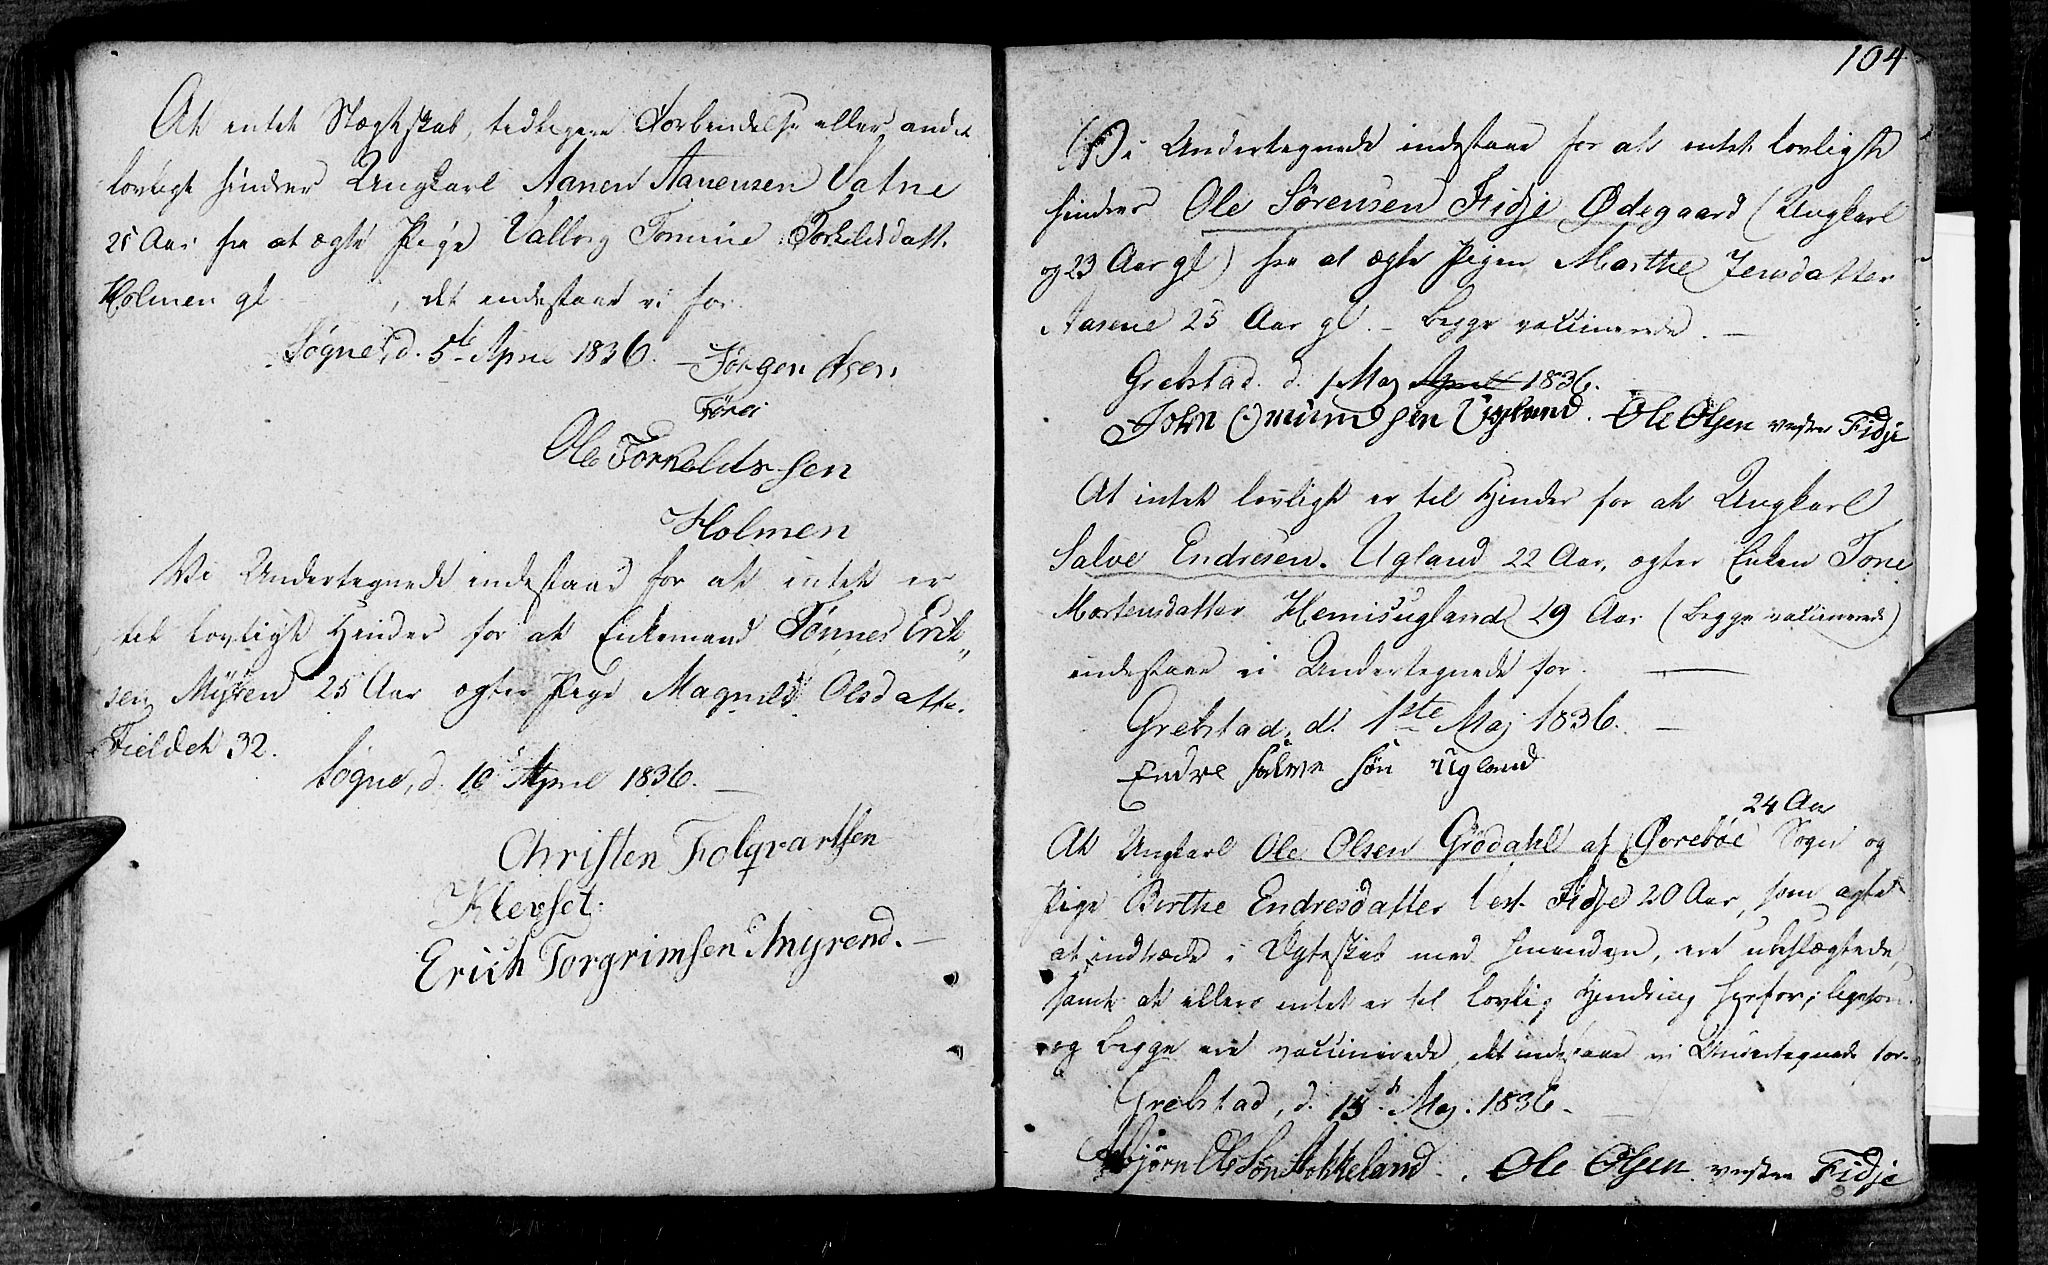 At intet Slægtskab, tidligere Forbindelse eller andet
lovligt hindrer Ungkarl Aanen Aanensen Vatne
25 Aar fra at ægte Pige Valborg Tomine Torkildsdatt.
Holmen gl , det indestaae vi for.
Søgne, d. 5te April 1836. Jörgen Olsen
Ole Torkeldssen
Holmen
Vi Undertegnede indestaae for at intet er
til lovligt Hinder for at Enkemand Tönnes Erik„
sen Myren 25 Aar ægter Pige Magnild Olsdatte.
Fieldet 32.
Søgne, d. 10 April 1836.
Christen Folqvartsen
Klepset.
Erich Torgrimsen Myrend.
104.
Vi Undertegnede indestaae for at intet lovligt
hindrer Ole Sørensen Fidje Ødegaard (Ungkarl
og 23 Aar gl) fra at ægte Pigen Marthe Jensdatter
Aasene 25 Aar gl. – Begge vaccinerede. –
Grebstad d. 1 Maj April 1836.
John Omundsen Ugland. Ole Olsen vestre Fidje
At intet lovligt er til Hinder for at Ungkarl
Salve Endresen Ugland 22 Aar, ægter Enken Tone
Mortensdatter Hemisugland 29 Aar (Begge vaccinerede)
indestaae vi Undertegnede for. —
Grebstad, d. 1ste Maj 1836. —
Endre Salve sön Ugland
24 Aar
At Ungkarl Ole Olsen Grödahl af Øvreböe Sogn og
Pige Berthe Endresdatter Vest. Fidje 20 Aar, som agte
at indtræde i Ægteskab med hinanden, ere ubeslægtede,
samt at ellers intet er til lovlig Hindring herfor, ligesom
og begge ere vaccinerede, det indestaae vi Undertegnede for.
Grebstad, d. 15d Maj. 1836.
Asbjørn Olesön Stokkeland. Ole Olsen vestre Fidje